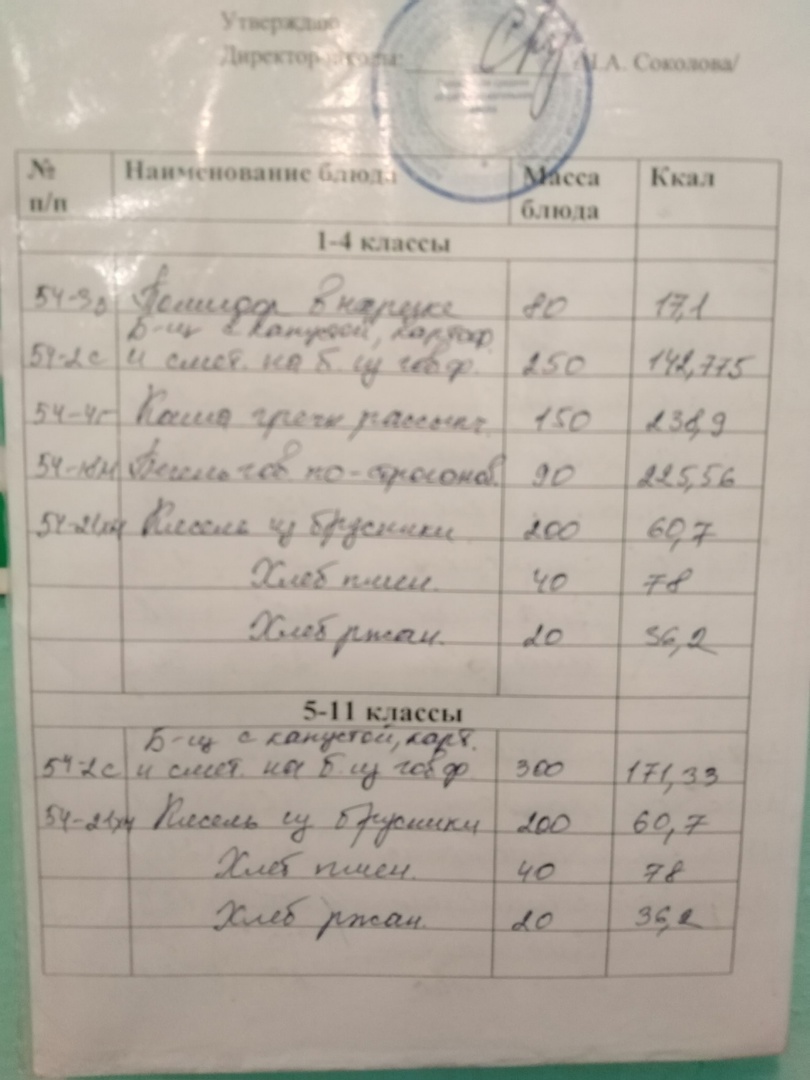 Утверждаю
Директор школы: А. Соколова/
№ п/п Наименование блюда Масса блюда Ккал
1-4 классы
54-3з Помидор в нарезке 80 17,1
Б-щ с капустой, картоф.
54-2с и смет. на б. из гов ф. 250 142,775
54-4г Каша гречн рассыпч. 150 238,9
гов. по-строгонов. 90 225,56
54-21хн Кисель из брусники 200 60,7
Хлеб пшен. 40 78
Хлеб ржан. 20 36,2
5-11 классы
Б-щ с капустой, карт.
54-2с и смет. на б. из гов ф 300 171,33
54-21хн Кисель из брусники 200 60,7
Хлеб пшен. 40 78
Хлеб ржан. 20 36,2